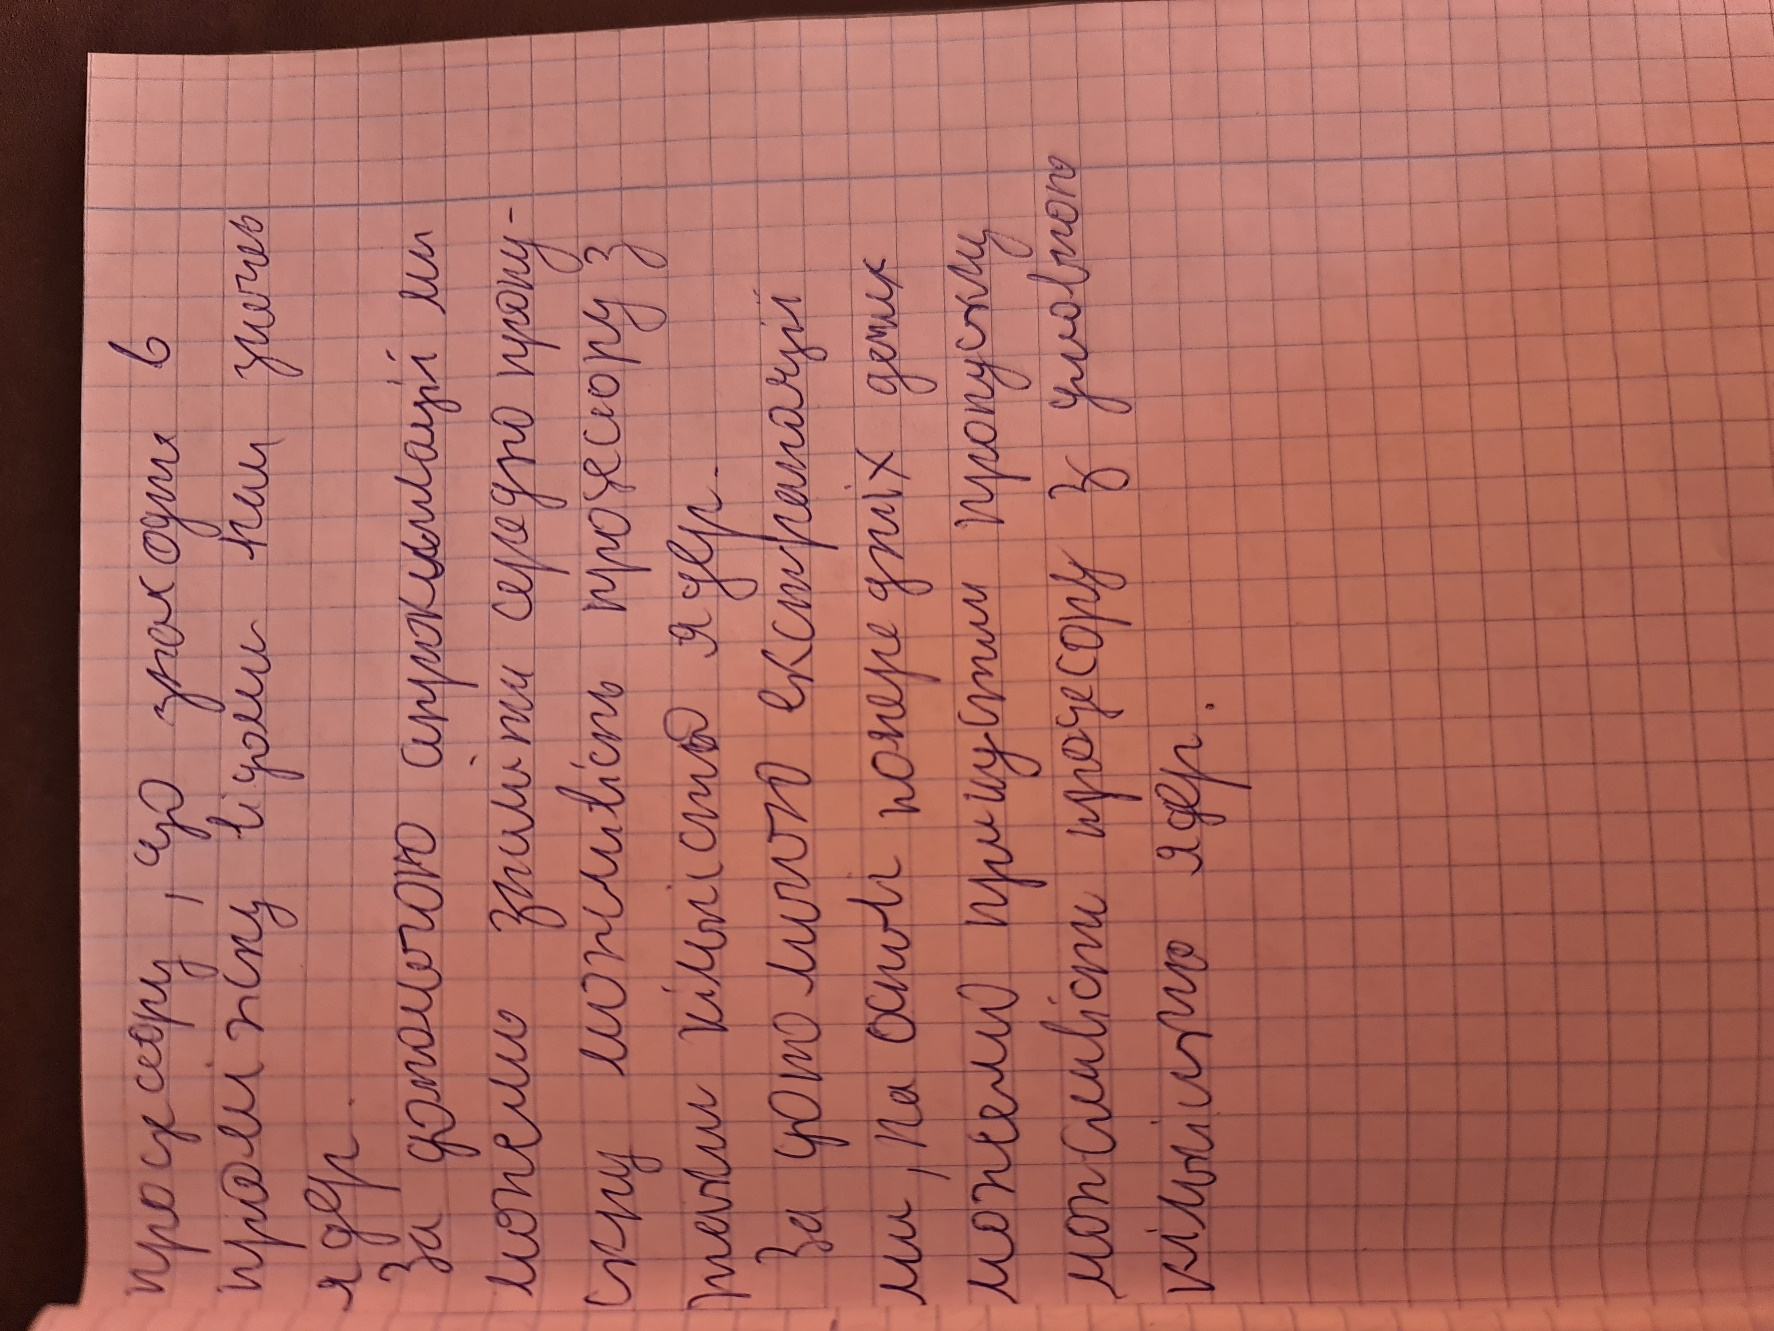 процесору, що знаходиться в
проміжку відомих нам значень
ядер.
За допомогою апроксимації ми
можемо знайти середню пропу-
скну можливість процесору з
такою кількістю ядер.
За допомогою екстраполяції
ми, на основі попередніх даних
можемо припустити пропускну
можливість процесору з умовною
кількістю ядер.